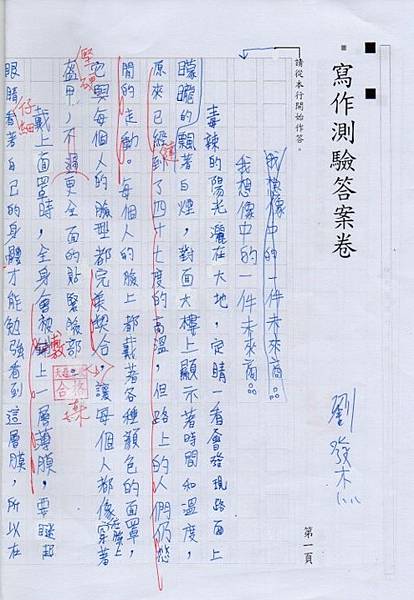 寫作測驗答案卷
第一頁
請從本行開始作答。
我想像中的一件未來商品
我想像中的一件未來商品
毒辣的陽光灑在大地，定睛一看會發現路面上
矇矓的飄著白煙，對面大樓上顯示著時間和溫度，
原來已經到了四十七度的高溫，但路上的人們仍悠
達
閒的走動。每個人的臉上都戴著各種顏色的面罩，
它與每個人的臉型都完美契合，讓每個人都像穿著
盔甲，不過更全面的貼緊臉部
合格
戴上面罩時，全身會被上一層薄膜，要瞇起
敷
仔細
眼睛看著自己的身體才能勉強看到這層膜，所以在